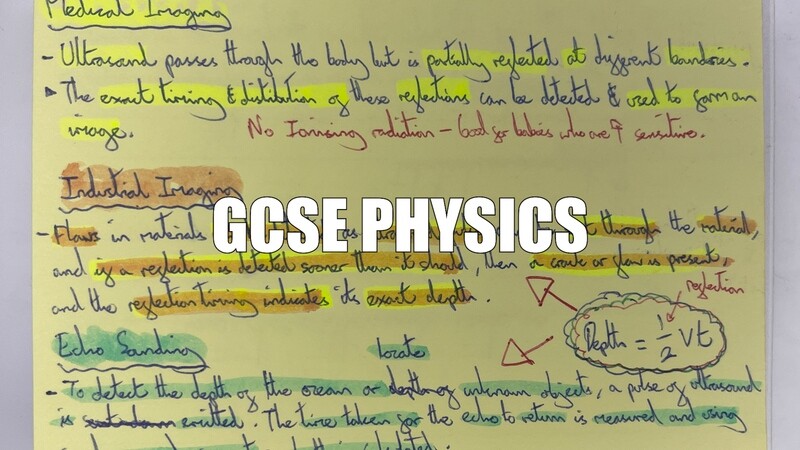 Medical Imaging
- Ultrasound passes through the body but is partially reflected at different boundries.
The exact timing & distibution of these reflections can be detected & used to form an
image. No Ionising radiation - Good for babies who are ↑ sensitive.
Industrial Imaging
GCSE PHYSICS
- Flaws in materials as through the material,
and if a reflection is detected sooner than it should, then a crack or flaw is present,
and the reflection timing indicates its exact depth.
reflection
Depth = 1/2 Vt
Echo Sounding
locate
- To detect the depth of the ocean or depth of unknown objects, a pulse of ultrasound
is emitted. The time taken for the echo to return is measured and using